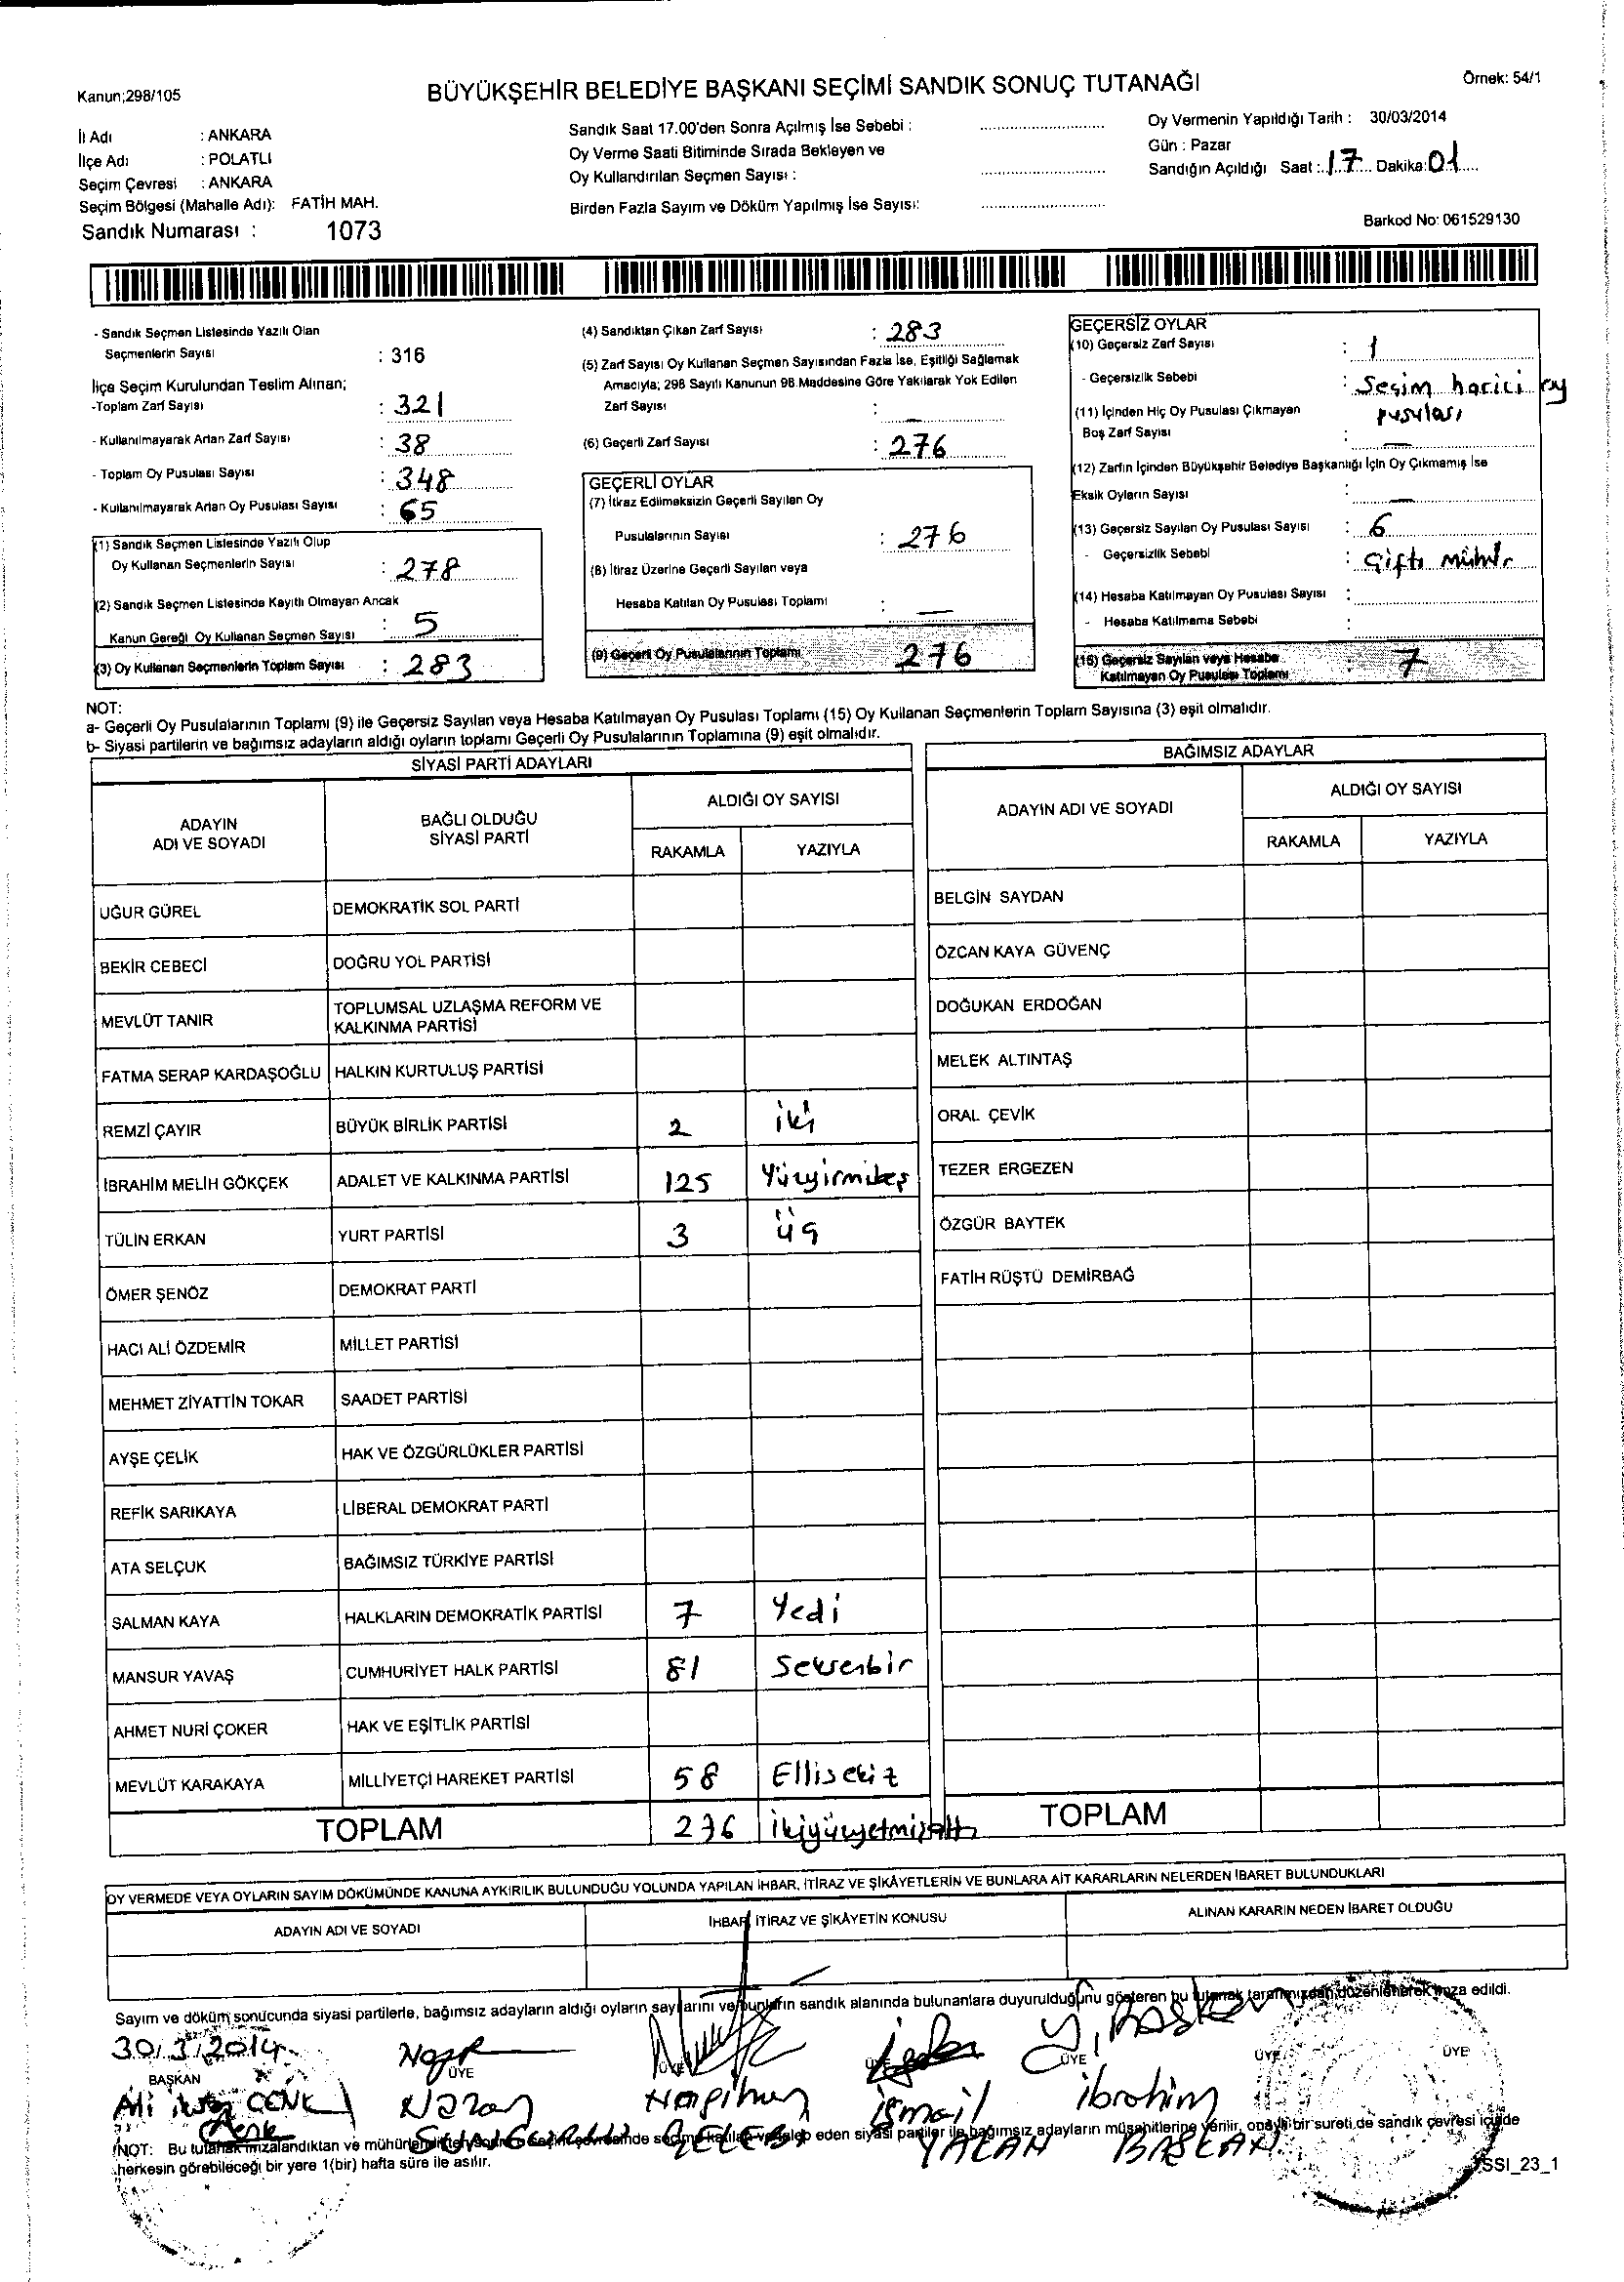 Kanun;298/105
BÜYÜKŞEHİR BELEDİYE BAŞKANI SEÇİMİ SANDIK SONUÇ TUTANAĞI
Örnek: 54/1
İl Adı : ANKARA
İlçe Adı : POLATLI
Seçim Çevresi : ANKARA
Seçim Bölgesi (Mahalle Adı): FATİH MAH.
Sandık Numarası : 1073
Sandık Saat 17.00'den Sonra Açılmış İse Sebebi :
Oy Verme Saati Bitiminde Sırada Bekleyen ve
Oy Kullandırılan Seçmen Sayısı :
Birden Fazla Sayım ve Döküm Yapılmış İse Sayısı:
Oy Vermenin Yapıldığı Tarih : 30/03/2014
Gün : Pazar
Sandığın Açıldığı Saat : 17 Dakika: 01
Barkod No: 061529130
- Sandık Seçmen Listesinde Yazılı Olan
Seçmenlerin Sayısı : 316
İlçe Seçim Kurulundan Teslim Alınan;
-Toplam Zarf Sayısı : 321
- Kullanılmayarak Artan Zarf Sayısı : 38
- Toplam Oy Pusulası Sayısı : 348
- Kullanılmayarak Artan Oy Pusulası Sayısı : 65
(1) Sandık Seçmen Listesinde Yazılı Olup
Oy Kullanan Seçmenlerin Sayısı : 278
(2) Sandık Seçmen Listesinde Kayıtlı Olmayan Ancak
Kanun Gereği Oy Kullanan Seçmen Sayısı : 5
(3) Oy Kullanan Seçmenlerin Toplam Sayısı : 283
(4) Sandıktan Çıkan Zarf Sayısı : 283
(5) Zarf Sayısı Oy Kullanan Seçmen Sayısından Fazla İse, Eşitliği Sağlamak
Amacıyla; 298 Sayılı Kanunun 98.Maddesine Göre Yakılarak Yok Edilen
Zarf Sayısı : —
(6) Geçerli Zarf Sayısı : 276
GEÇERLİ OYLAR
(7) İtiraz Edilmeksizin Geçerli Sayılan Oy
Pusulalarının Sayısı : 276
(8) İtiraz Üzerine Geçerli Sayılan veya
Hesaba Katılan Oy Pusulası Toplamı : —
(9) Geçerli Oy Pusulalarının Toplamı 276
GEÇERSİZ OYLAR
(10) Geçersiz Zarf Sayısı : 1
- Geçersizlik Sebebi : Seçim harici oy
pusulası
(11) İçinden Hiç Oy Pusulası Çıkmayan
Boş Zarf Sayısı : —
(12) Zarfın İçinden Büyükşehir Belediye Başkanlığı İçin Oy Çıkmamış İse
Eksik Oyların Sayısı : —
(13) Geçersiz Sayılan Oy Pusulası Sayısı : 6
- Geçersizlik Sebebi : Çift mühür
(14) Hesaba Katılmayan Oy Pusulası Sayısı :
- Hesaba Katılmama Sebebi :
(15) Geçersiz Sayılan veya Hesaba
Katılmayan Oy Pusulası Toplamı 7
NOT:
a- Geçerli Oy Pusulalarının Toplamı (9) ile Geçersiz Sayılan veya Hesaba Katılmayan Oy Pusulası Toplamı (15) Oy Kullanan Seçmenlerin Toplam Sayısına (3) eşit olmalıdır.
b- Siyasi partilerin ve bağımsız adayların aldığı oyların toplamı Geçerli Oy Pusulalarının Toplamına (9) eşit olmalıdır.
SİYASİ PARTİ ADAYLARI
ADAYIN ADI VE SOYADI
BAĞLI OLDUĞU SİYASİ PARTİ
ALDIĞI OY SAYISI
RAKAMLA YAZIYLA
UĞUR GÜREL DEMOKRATİK SOL PARTİ
BEKİR CEBECİ DOĞRU YOL PARTİSİ
MEVLÜT TANIR TOPLUMSAL UZLAŞMA REFORM VE KALKINMA PARTİSİ
FATMA SERAP KARDAŞOĞLU HALKIN KURTULUŞ PARTİSİ
REMZİ ÇAYIR BÜYÜK BİRLİK PARTİSİ 2 iki
İBRAHİM MELİH GÖKÇEK ADALET VE KALKINMA PARTİSİ 125 Yüzyirmibeş
TÜLİN ERKAN YURT PARTİSİ 3 üç
ÖMER ŞENÖZ DEMOKRAT PARTİ
HACI ALİ ÖZDEMİR MİLLET PARTİSİ
MEHMET ZİYATTİN TOKAR SAADET PARTİSİ
AYŞE ÇELİK HAK VE ÖZGÜRLÜKLER PARTİSİ
REFİK SARIKAYA LİBERAL DEMOKRAT PARTİ
ATA SELÇUK BAĞIMSIZ TÜRKİYE PARTİSİ
SALMAN KAYA HALKLARIN DEMOKRATİK PARTİSİ 7 Yedi
MANSUR YAVAŞ CUMHURİYET HALK PARTİSİ 81 Seksenbir
AHMET NURİ ÇOKER HAK VE EŞİTLİK PARTİSİ
MEVLÜT KARAKAYA MİLLİYETÇİ HAREKET PARTİSİ 58 Ellisekiz
TOPLAM 276 ikiyüzyetmişaltı
BAĞIMSIZ ADAYLAR
ADAYIN ADI VE SOYADI
ALDIĞI OY SAYISI
RAKAMLA YAZIYLA
BELGİN SAYDAN
ÖZCAN KAYA GÜVENÇ
DOĞUKAN ERDOĞAN
MELEK ALTINTAŞ
ORAL ÇEVİK
TEZER ERGEZEN
ÖZGÜR BAYTEK
FATİH RÜŞTÜ DEMİRBAĞ
TOPLAM
OY VERMEDE VEYA OYLARIN SAYIM DÖKÜMÜNDE KANUNA AYKIRILIK BULUNDUĞU YOLUNDA YAPILAN İHBAR, İTİRAZ VE ŞİKÂYETLERİN VE BUNLARA AİT KARARLARIN NELERDEN İBARET BULUNDUKLARI
ADAYIN ADI VE SOYADI
İHBAR İTİRAZ VE ŞİKÂYETİN KONUSU
ALINAN KARARIN NEDEN İBARET OLDUĞU
Sayım ve döküm sonucunda siyasi partilerle, bağımsız adayların aldığı oyların sayılarını ve bunların sandık alanında bulunanlara duyurulduğunu gösteren bu tutanak tarafımızdan düzenlenerek imza edildi.
30/3/2014
BAŞKAN ÜYE ÜYE ÜYE ÜYE ÜYE ÜYE
Y, Başkan
Ali CENK Nazan ismail ibrahim
ÇELEBİ YALAN BAŞKAN
NOT: Bu tutanak imzalandıktan ve mühürlendikten sonra seçim çevresinde seçime katılan ve talep eden siyasi partiler ile bağımsız adayların müşahitlerine verilir, onaylı bir sureti de sandık çevresi içinde
herkesin görebileceği bir yere 1(bir) hafta süre ile asılır.
SSI_23_1